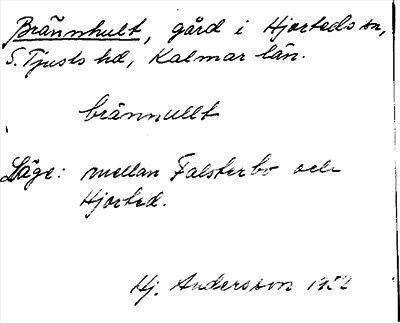 Brännhult, gård i Hjorteds sn,
S. Tjusts hd, Kalmar län.
brännullt
Läge: mellan Falsterbo och
Hjorted.
Hj. Andersson 1952